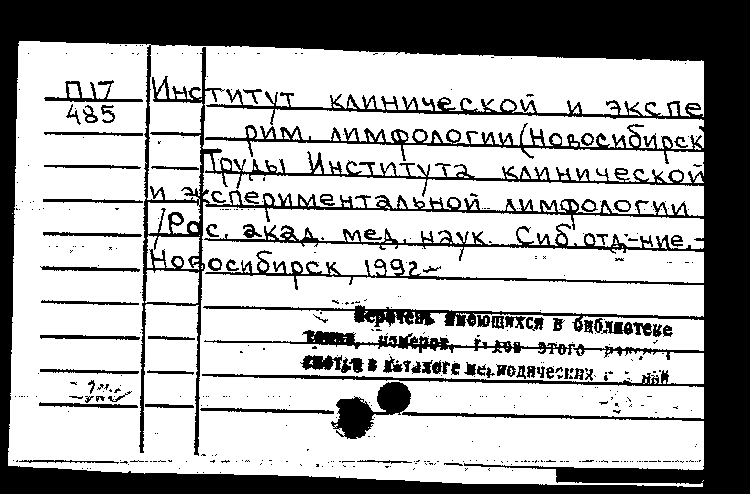 П17
485
Институт клинической и экспе
рим. лимфологии (Новосибирск)
Труды Института клинической
и экспериментальной лимфологии
/Рос. акад. мед. наук. Сиб. отд-ние.-
Новосибирск, 1992-
Перечень имеющихся в библиотеке
томов, номеров, годов этого
смотри в каталоге периодических